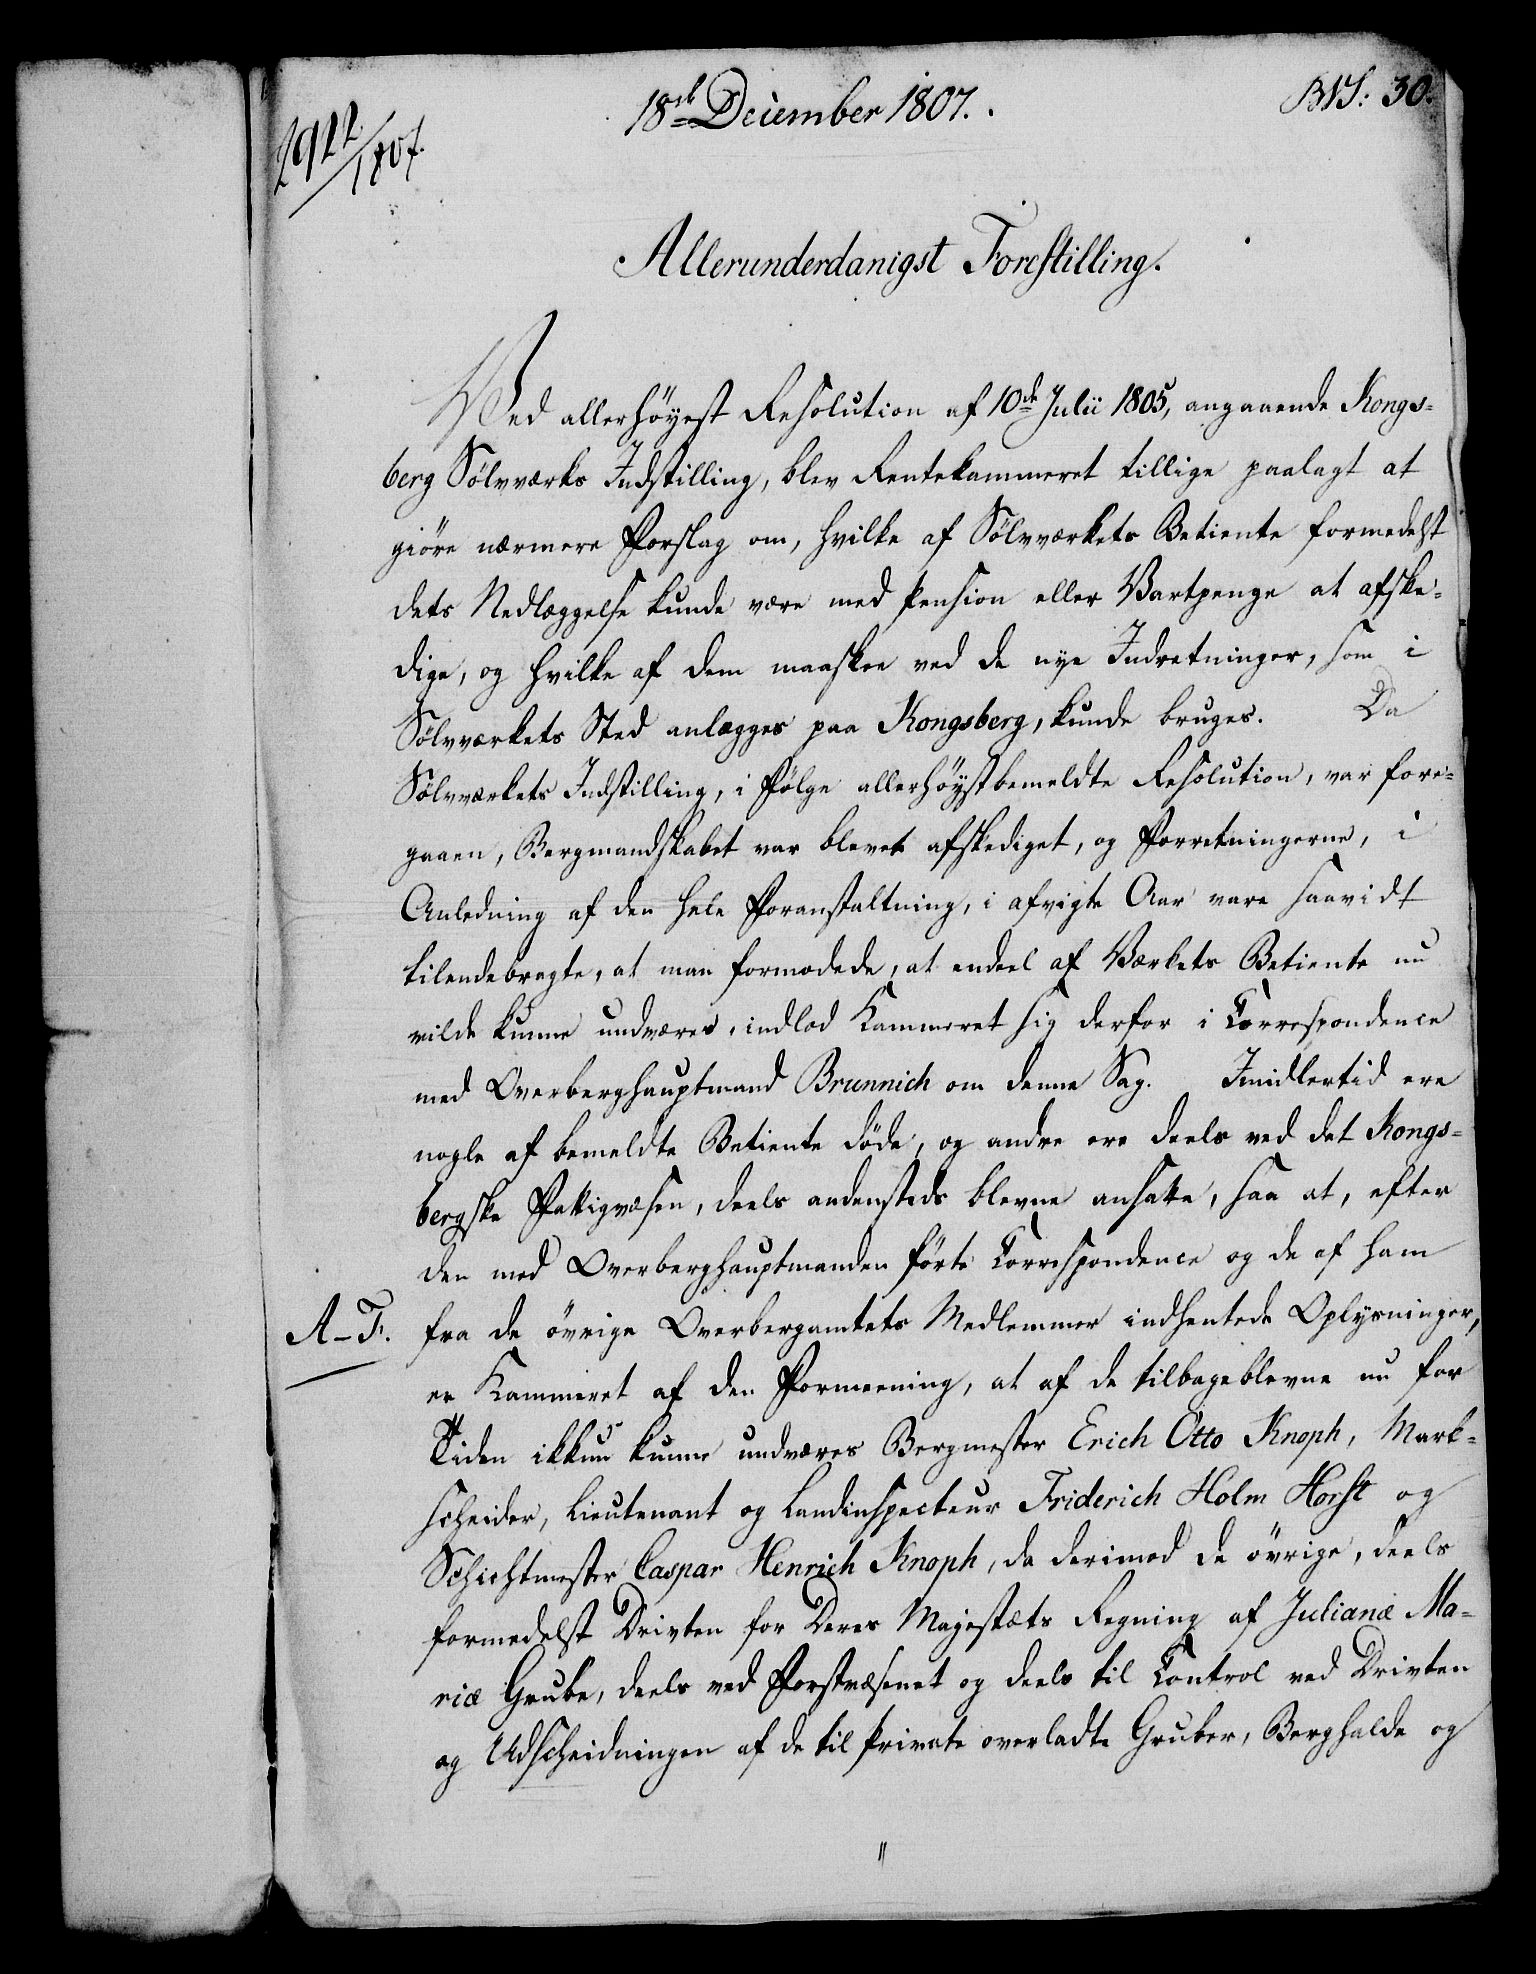 18de December 1807.
BNS: 30.
2922/1807.
Allerunderdanigst Forestilling.
Ved allerhøyest Resolution af 10de Julii 1805, angaaende Kongs-
berg Sølvværks Indstilling, blev Rentekammeret tillige paalagt at
giöre nærmere Forslag om, hvilke af Sølvværkets Betiente formedelst
dets Nedlæggelse kunde være med Pension eller Vartpenge at afske-
dige, og hvilke af dem maaskee ved de nye Indretninger, som i
Sølvværkets Sted anlægges paa Kongsberg, kunde bruges. Da
Sølvværkets Indstilling, i Følge allerhøystbemeldte Resolution, var fore-
gaaen, Bergmandskabet var blevet afskediget, og Forretningerne, i
Anledning af den hele Foranstaltning, i afvigte Aar vare saavidt
tilendebragte, at man formodede, at endeel af Værkets Betiente nu
vilde kunne undværes, indlod Kammeret sig derfor i Correspondence
med Overberghauptmand Brunnich om denne Sag. Imidlertid ere
nogle af bemeldte Betiente döde, og andre ere deels ved det Kongs-
bergske Fattigvæsen, deels andensteds blevne ansatte, saa at, efter
den med Overberghauptmanden förte Correspondence og de af ham
A-F. fra de övrige Overbergamtets Medlemmer indhentede Oplysninger,
er Kammeret af den Formeening, at af de tilbageblevne nu for
Tiden ikkun kunne undværes Bergmester Erich Otto Knoph, Mark-
scheider, Lieutenant og Landinspecteur Friderich Holm Horst og
Schichtmester Caspar Henrich Knoph, da derimod de övrige, deels
formedelst Driften for Deres Majestæts Regning af Julianæ Ma-
riæ Grube, deels ved Forstvæsenet og deels til Control ved Driften
og Udscheidningen af de til Private overladte Gruber, Berghalde og
"